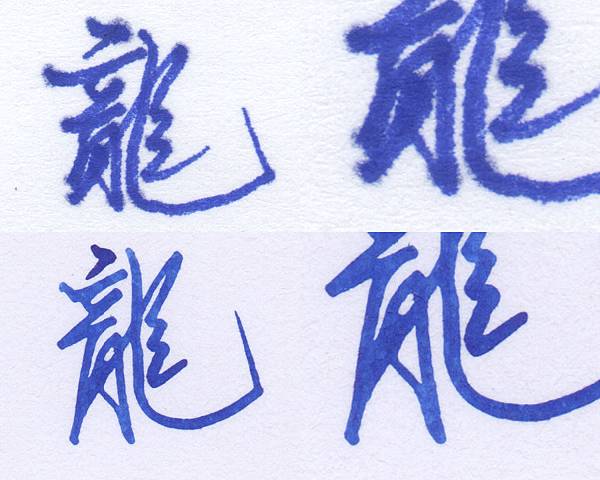 龍 龍
龍 龍